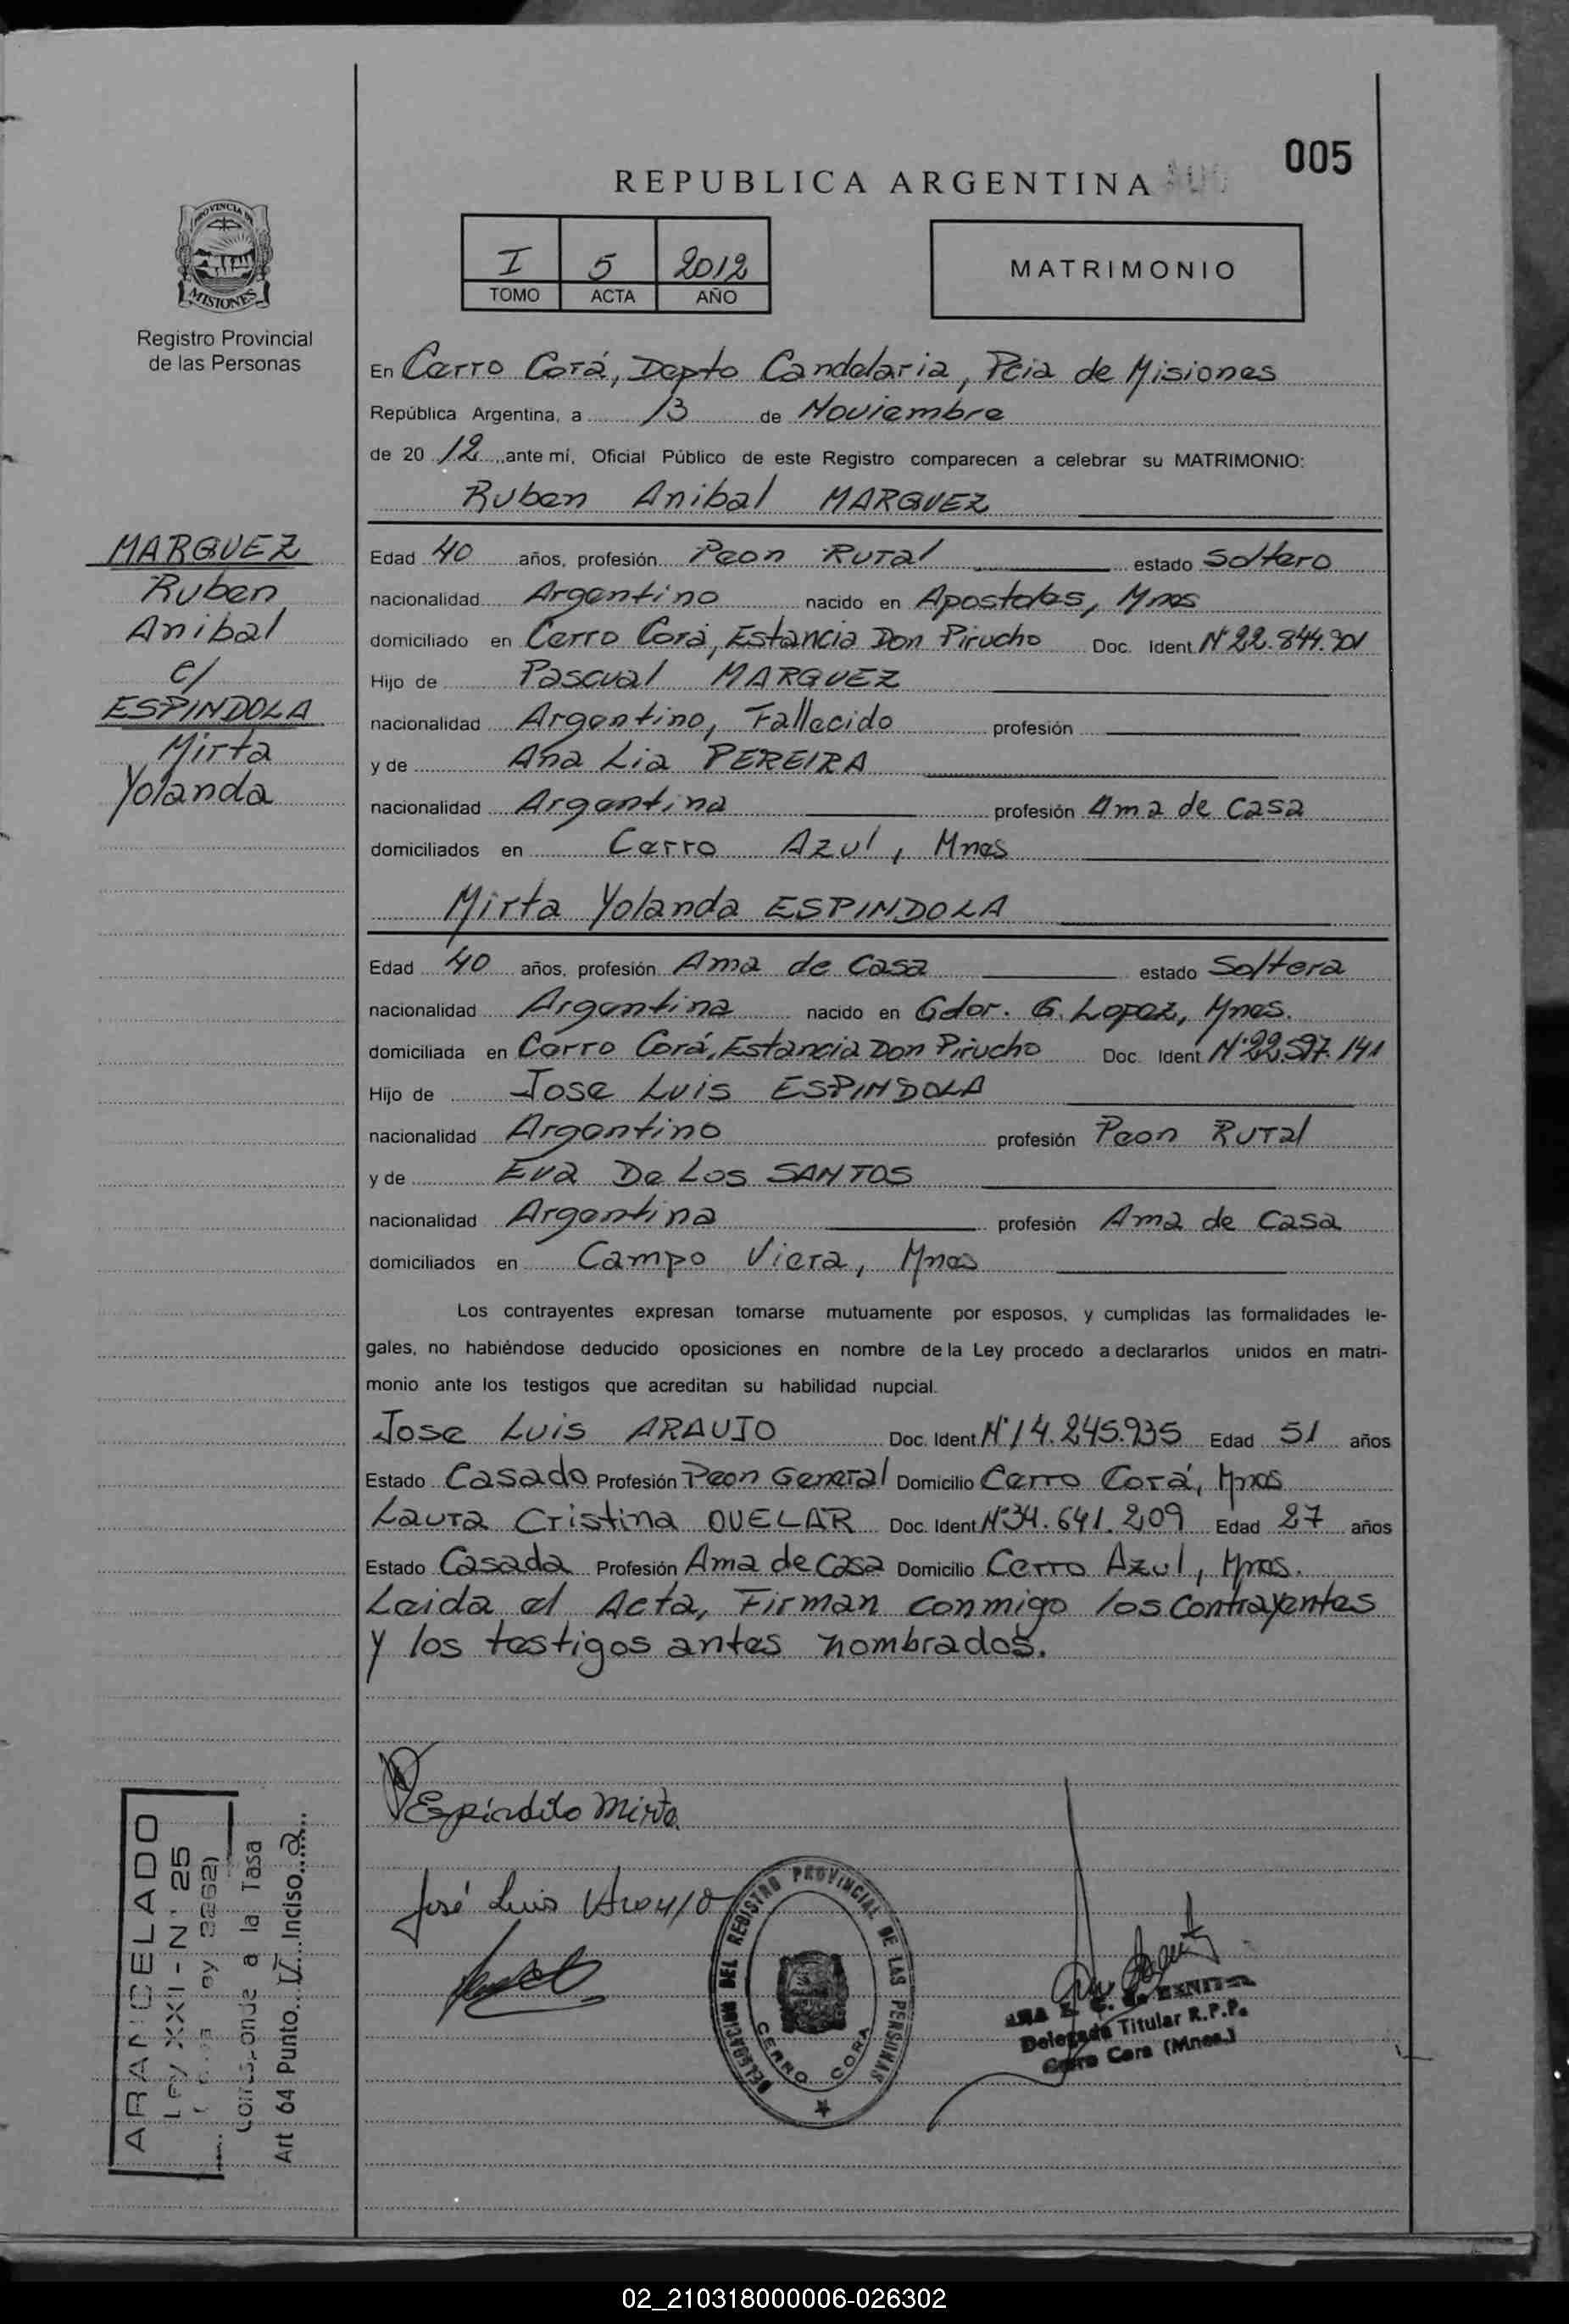 005
REPUBLICA ARGENTINA
I 5 2012
TOMO ACTA AÑO
MATRIMONIO
PROVINCIA DE
MISIONES
Registro Provincial
de las Personas
En Cerro Corá, Depto Candelaria, Pcia de Misiones
República Argentina, a 13 de Noviembre
de 20 12 ante mí, Oficial Público de este Registro comparecen a celebrar su MATRIMONIO:
Ruben Anibal MARQUEZ
MARQUEZ
Ruben
Anibal
c/
ESPINDOLA
Mirta
Yolanda
Edad 40 años, profesión Peon Rural estado Soltero
nacionalidad Argentino nacido en Apostoles, Mnes
domiciliado en Cerro Corá, Estancia Don Pirucho Doc. Ident. Nº 22.844.901
Hijo de Pascual MARQUEZ
nacionalidad Argentino, Fallecido profesión
y de Ana Lia PEREIRA
nacionalidad Argentina profesión Ama de casa
domiciliados en Cerro Azul, Mnes
Mirta Yolanda ESPINDOLA
Edad 40 años, profesión Ama de Casa estado Soltera
nacionalidad Argentina nacido en Gdor. G. Lopez, Mnes.
domiciliada en Cerro Corá, Estancia Don Pirucho Doc. Ident Nº 22.597.141
Hijo de Jose Luis ESPINDOLA
nacionalidad Argentino profesión Peon Rural
y de Eva De Los SANTOS
nacionalidad Argentina profesión Ama de Casa
domiciliados en Campo Viera, Mnes
Los contrayentes expresan tomarse mutuamente por esposos, y cumplidas las formalidades le-
gales, no habiéndose deducido oposiciones en nombre de la Ley procedo a declararlos unidos en matri-
monio ante los testigos que acreditan su habilidad nupcial.
Jose Luis ARAUJO Doc. Ident. Nº 14.245.935 Edad 51 años
Estado Casado Profesión Peon General Domicilio Cerro Corá, Mnes
Laura Cristina OVELAR Doc. Ident. Nº 34.641.209 Edad 27 años
Estado Casada Profesión Ama de Casa Domicilio Cerro Azul, Mnes.
Leida el Acta, Firman conmigo los contrayentes
y los testigos antes nombrados.
Espindilo Mirta
José Luis Araujo
DELEGACION DEL REGISTRO PROVINCIAL DE LAS PERSONAS
CERRO CORA
Delegada Titular R.P.P.
Cerro Cora (Mnes.)
ARANCELADO
Ley XXII - Nº 25
Ley 3262)
Corresponde a la Tasa
Art 64 Punto IV Inciso a
02_210318000006-026302